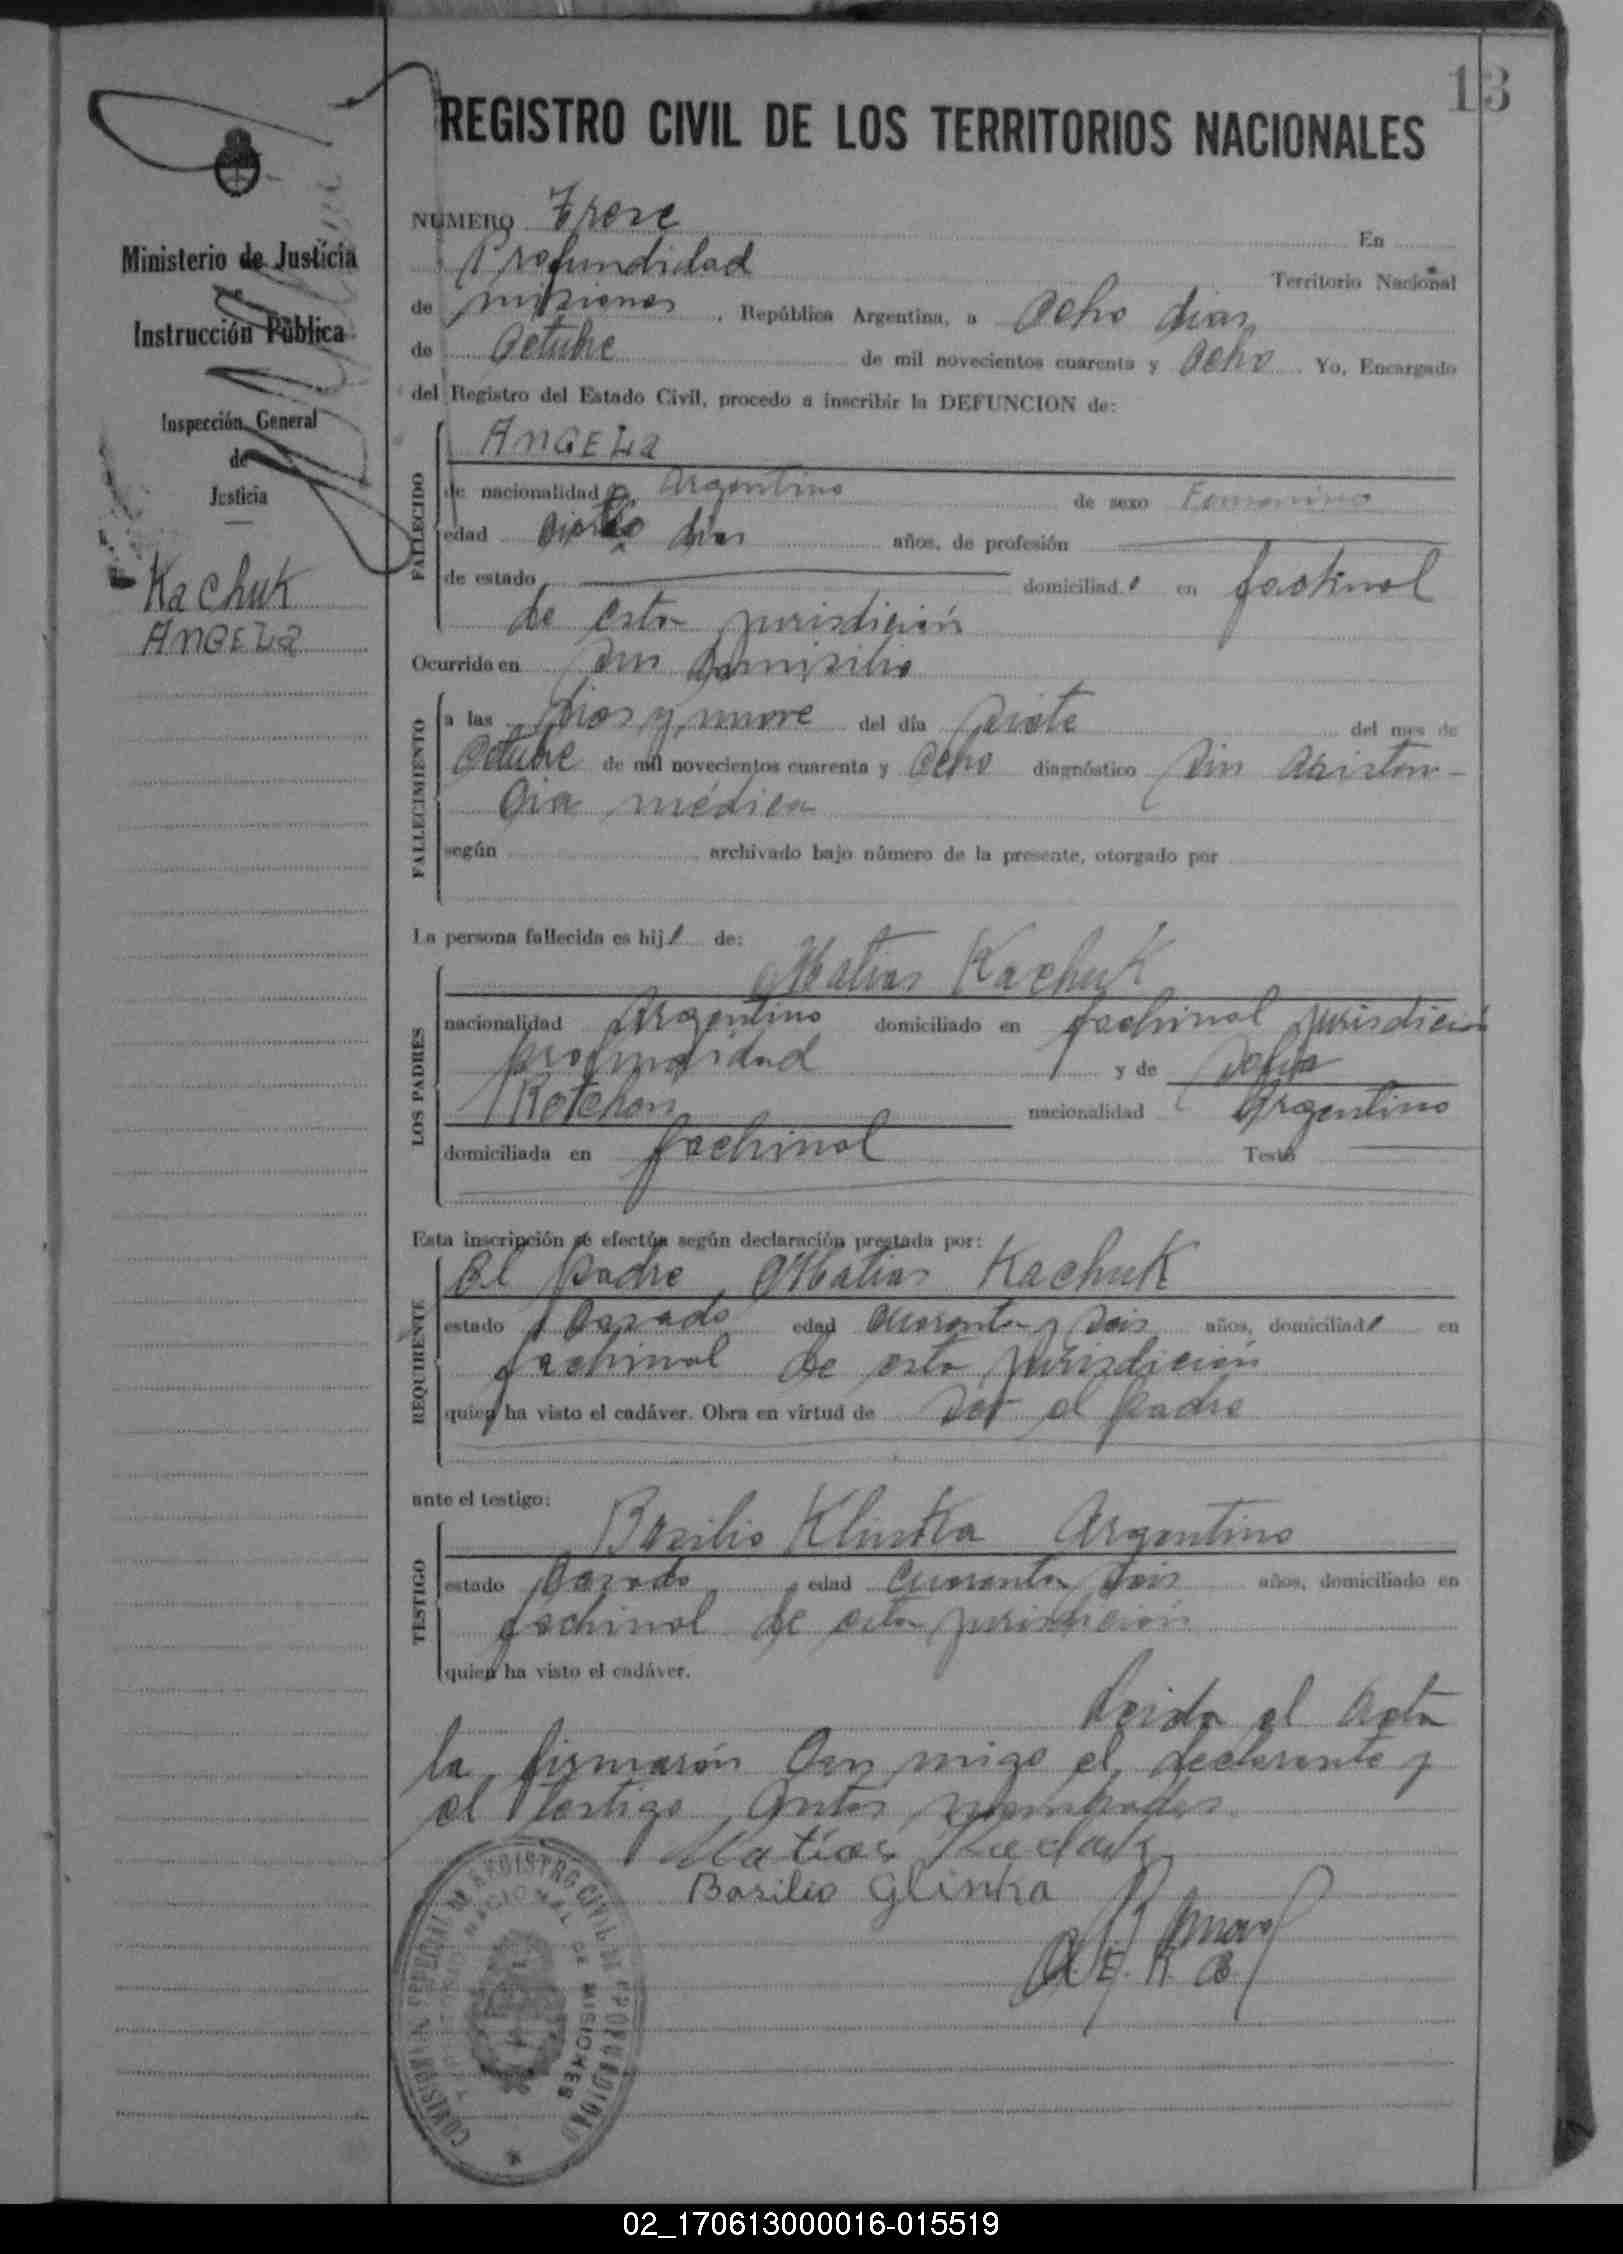 13
REGISTRO CIVIL DE LOS TERRITORIOS NACIONALES
Ministerio de Justicia
e
Instrucción Pública
Inspección General
de
Justicia
Kachuk
ANGELa
NUMERO Trese En
Profundidad Territorio Nacional
de misiones, República Argentina, a ocho dias
de Octubre de mil novecientos cuarenta y ocho Yo, Encargado
del Registro del Estado Civil, procedo a inscribir la DEFUNCION de:
FALLECIDO
ANGELa
de nacionalidad Argentino de sexo Femenino
edad dias años, de profesión
de estado domiciliad o en fachinal
de esta jurisdición
Ocurrida en su domisilio
FALLECIMIENTO
a las dies y nueve del día siete del mes de
Octubre de mil novecientos cuarenta y ocho diagnóstico Sin asisten-
cia médica
según archivado bajo número de la presente, otorgado por
La persona fallecida es hij o de:
LOS PADRES
Matias Kachuk
nacionalidad Argentino domiciliado en fachinal jurisdición
profundidad y de
nacionalidad Argentino
domiciliada en fachinal Testó
Esta inscripción se efectúa según declaración prestada por:
REQUIRENTE
El padre Matias Kachuk
estado Casado edad cuarenta y seis años, domiciliad o en
fachinal de esta jurisdición
quien ha visto el cadáver. Obra en virtud de ser el padre
ante el testigo:
TESTIGO
Basilio Klinka Argentino
estado Casado edad cuarenta años, domiciliado en
fachinal de esta jurisdición
quien ha visto el cadáver.
Leida el acta
la firmarón Con migo el declarante y
el testigo Antes nombrados
Matías
Basilio Glinka
COMISARIA REGISTRO CIVIL PROFUNDIDAD
NACIONAL DE MISIONES
02_170613000016-015519